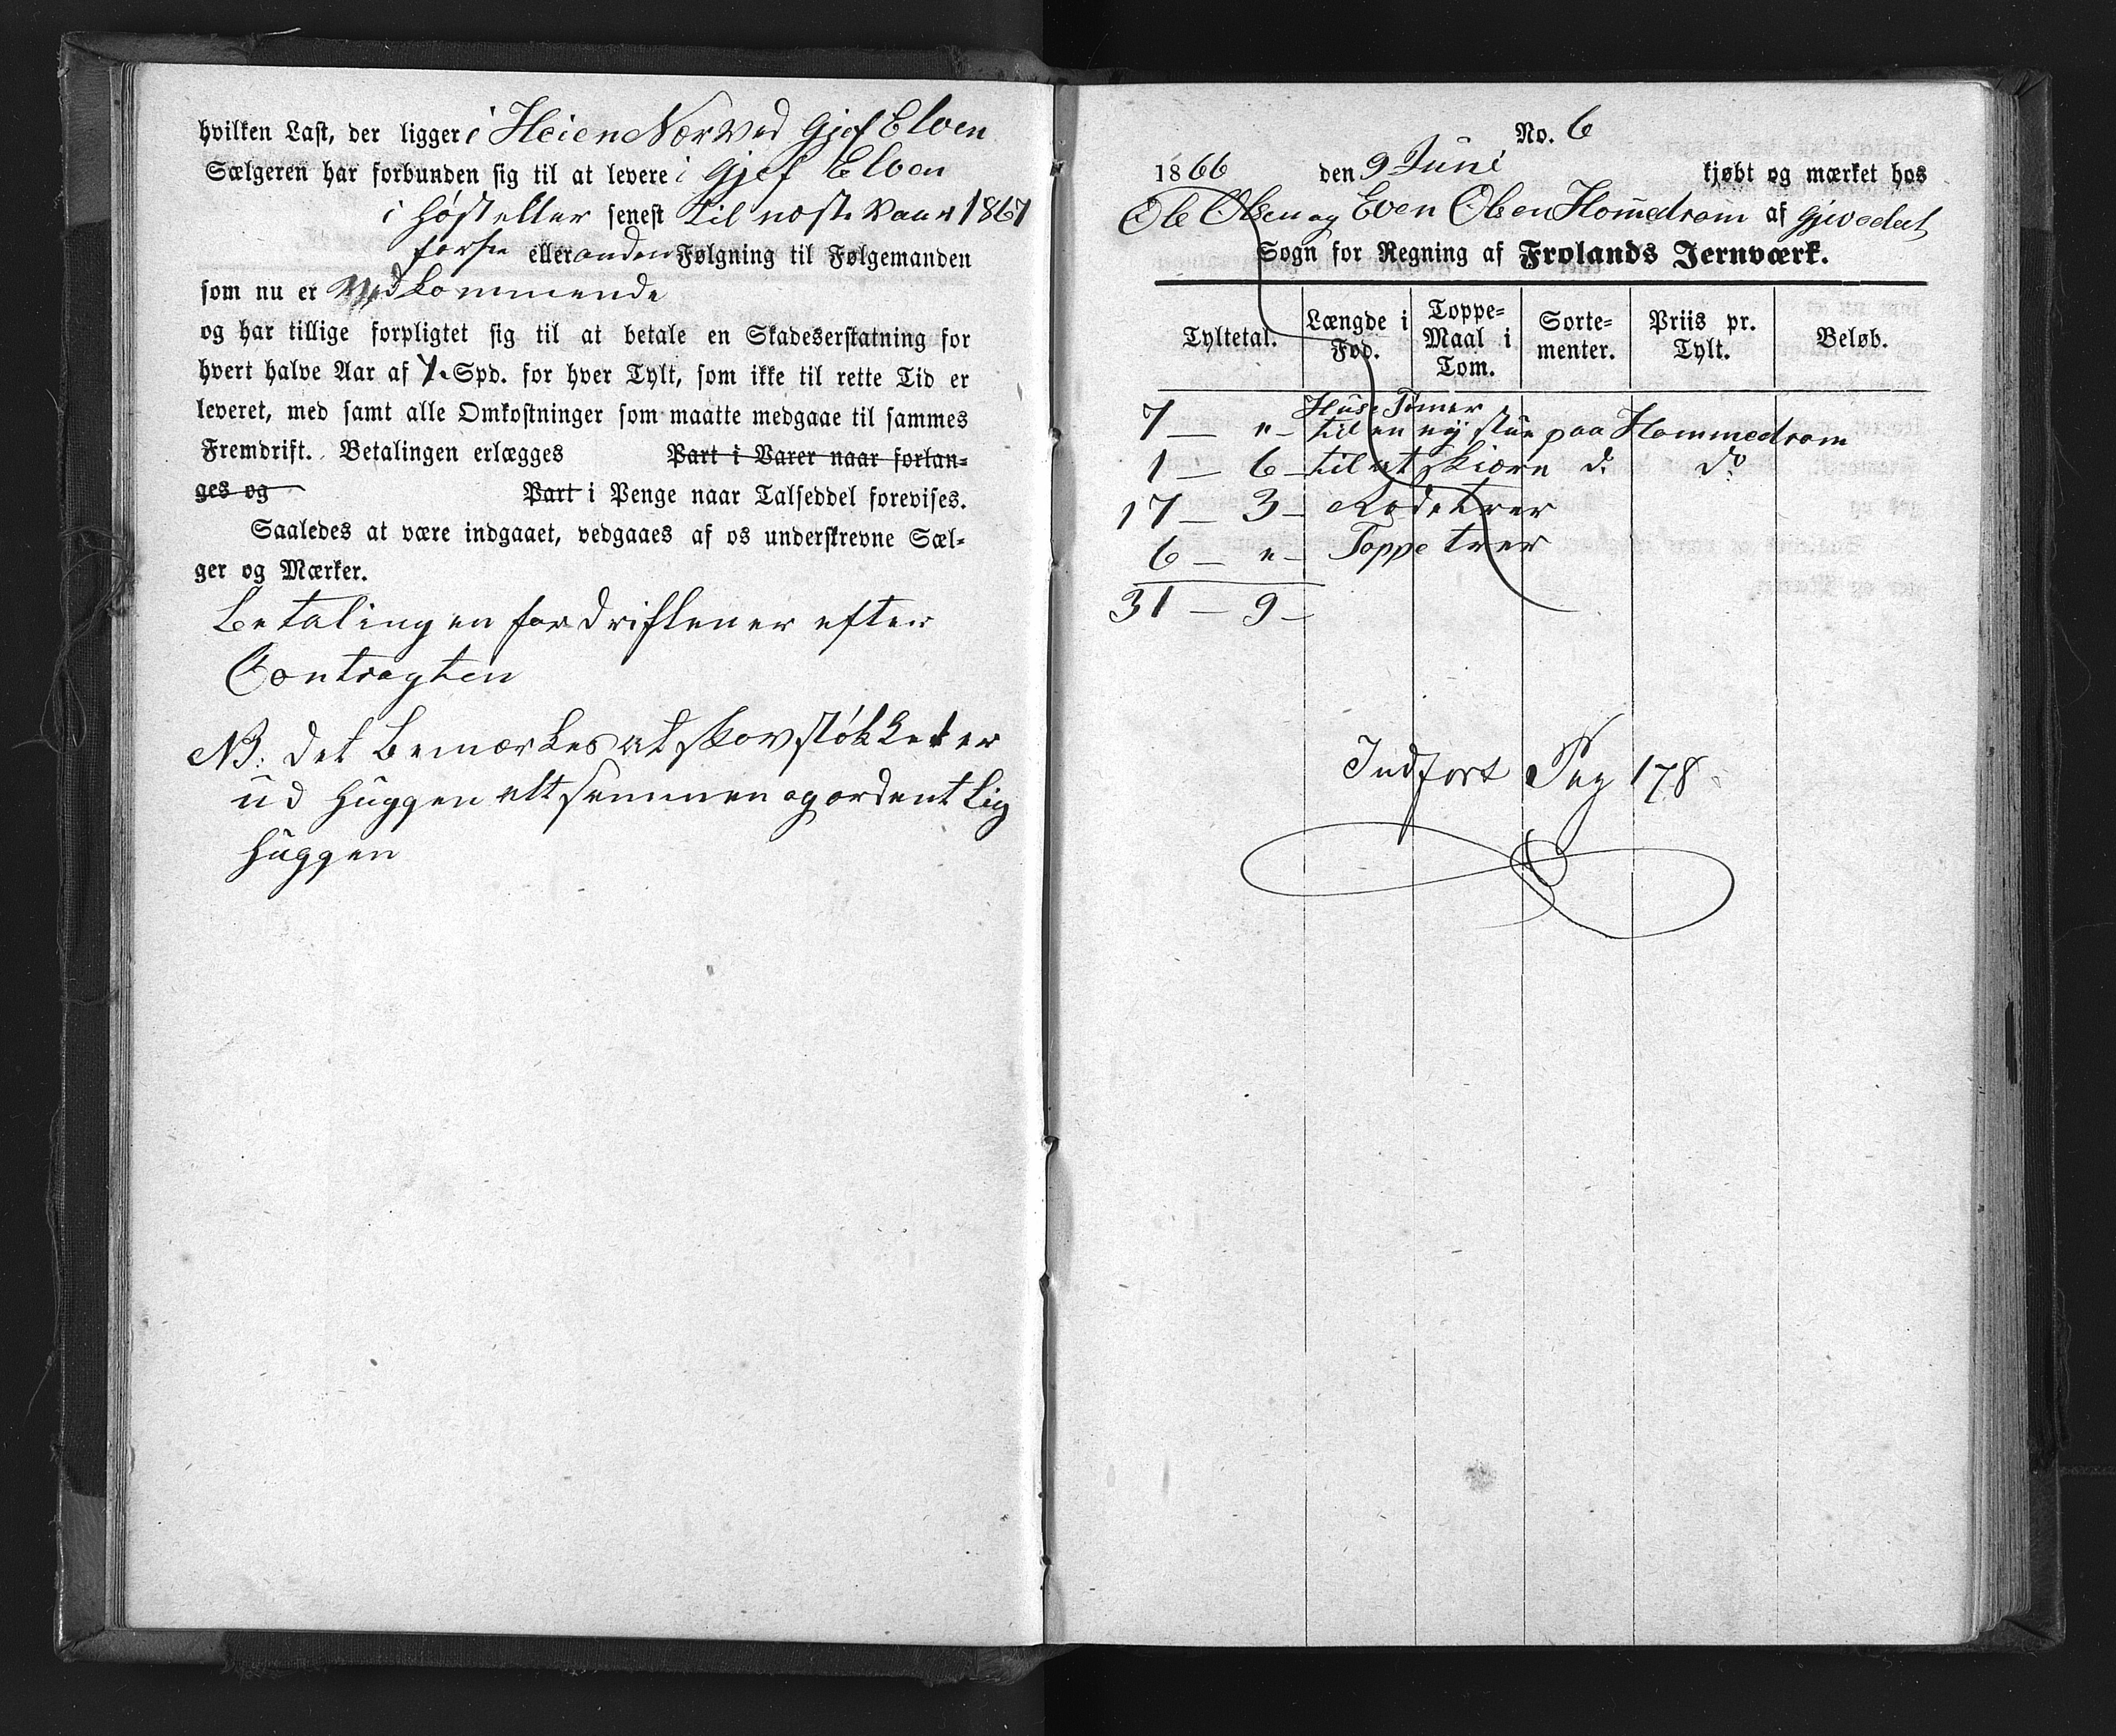 hvilken Last, der ligger i Heien Nær Ved Gjef Elven
Sælgeren har forbunden sig til at levere i Gjef Elven
i Høst eller senest til næste Vaar 1867
første eller anden Følgning til Følgemanden
som nu er Vedkommende
og har tillige forpligtet sig til at betale en Skadeserstatning for
hvert halve Aar af Spd. for hver Tylt, som ikke til rette Tid er
leveret, med samt alle Omkostninger som maatte medgaae til sammes
Fremdrift. Betalingen erlægges Part i Varer naar forlan-
ges og Part i Penge naar Talseddel forevises.
Saaledes at være indgaaet, vedgaaes af os underskrevne Sæl-
ger og Mærker.
Betalingen for Driften er efter
Contragten
NB: det Bemærkes at skovstøkket er
ud Huggen alt sammen og ordentlig
Huggen
No. 6
1866 den 9 Juni kjøbt og mærket hos
Ole Olsen og Even Olsen Homedram af Gjevedal
Sogn for Regning af Frolands Jernværk.
Tyltetal. Længde i Fod. Toppe-Maal i Tom. Sorte-menter. Priis pr. Tylt. Beløb.
Huse Tømer
7 — " — til en ny stue paa Hommedram
1 — 6 — til at skiære d. do
17 — 3 — Rodetrær
6 — " — Toppe trær
31 — 9 —
Indført Pag 178